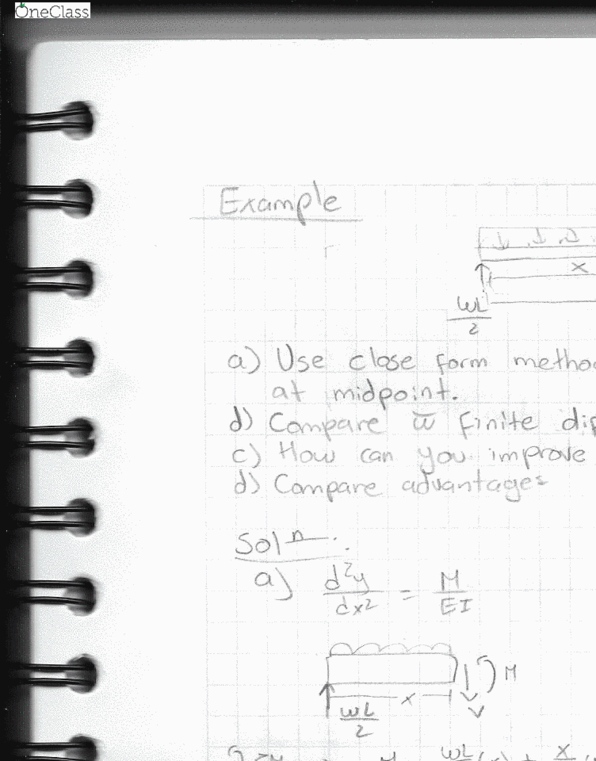 OneClass
Example
↓ ↓
x
wL/2
a) Use close form
at midpoint.
d) Compare w̄ finite
c) How can you improve
d) Compare advantages
Sol n.
a) d²y/dx² = M/EI
M
x
wL/2
V